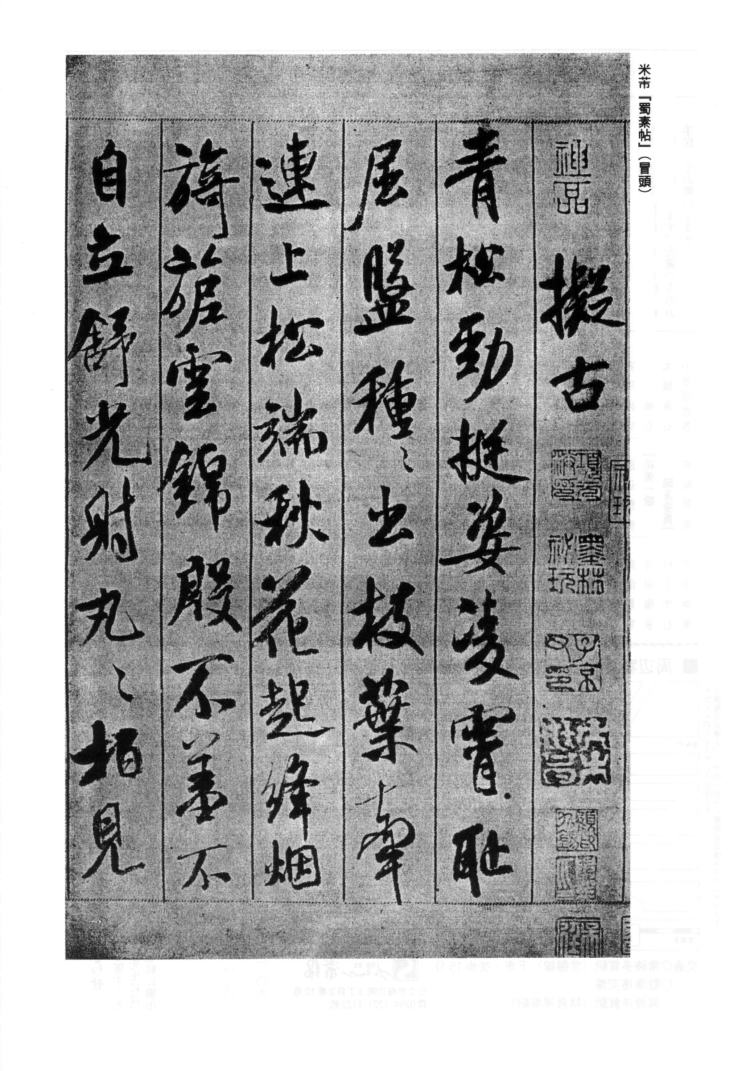 米芾『蜀素帖』(冒頭)
神品
擬古
青松勁挺姿凌霄恥
屈盤種〻出枝葉牽
連上松端秋花起絳烟
旖旎雲錦殷不羞不
自立舒光射丸〻柏見
墨林祕玩
子京父印